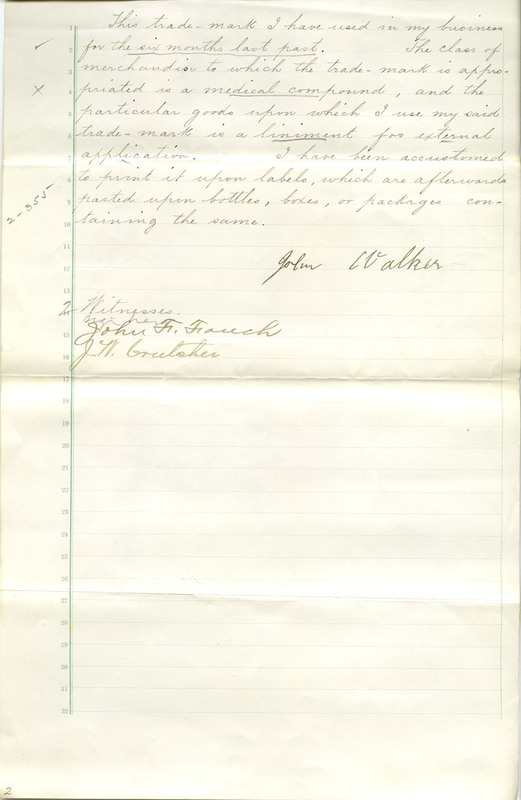 This trade-mark I have used in my business
for the six months last past. The class of
merchandise to which the trade-mark is appro-
priated is a medical compound, and the
particular goods upon which I use my said
trade-mark is a liniment for external
application. I have been accustomed
to print it upon labels, which are afterwards
pasted upon bottles, boxes, or packages con-
taining the same.
John Walker
2 Witnesses.
John F. Fauch
J. W. Crutcher
2-355
1
2
3
4
5
6
7
8
9
10
11
12
13
15
16
17
18
19
20
21
22
23
24
25
26
27
28
29
30
31
32
2